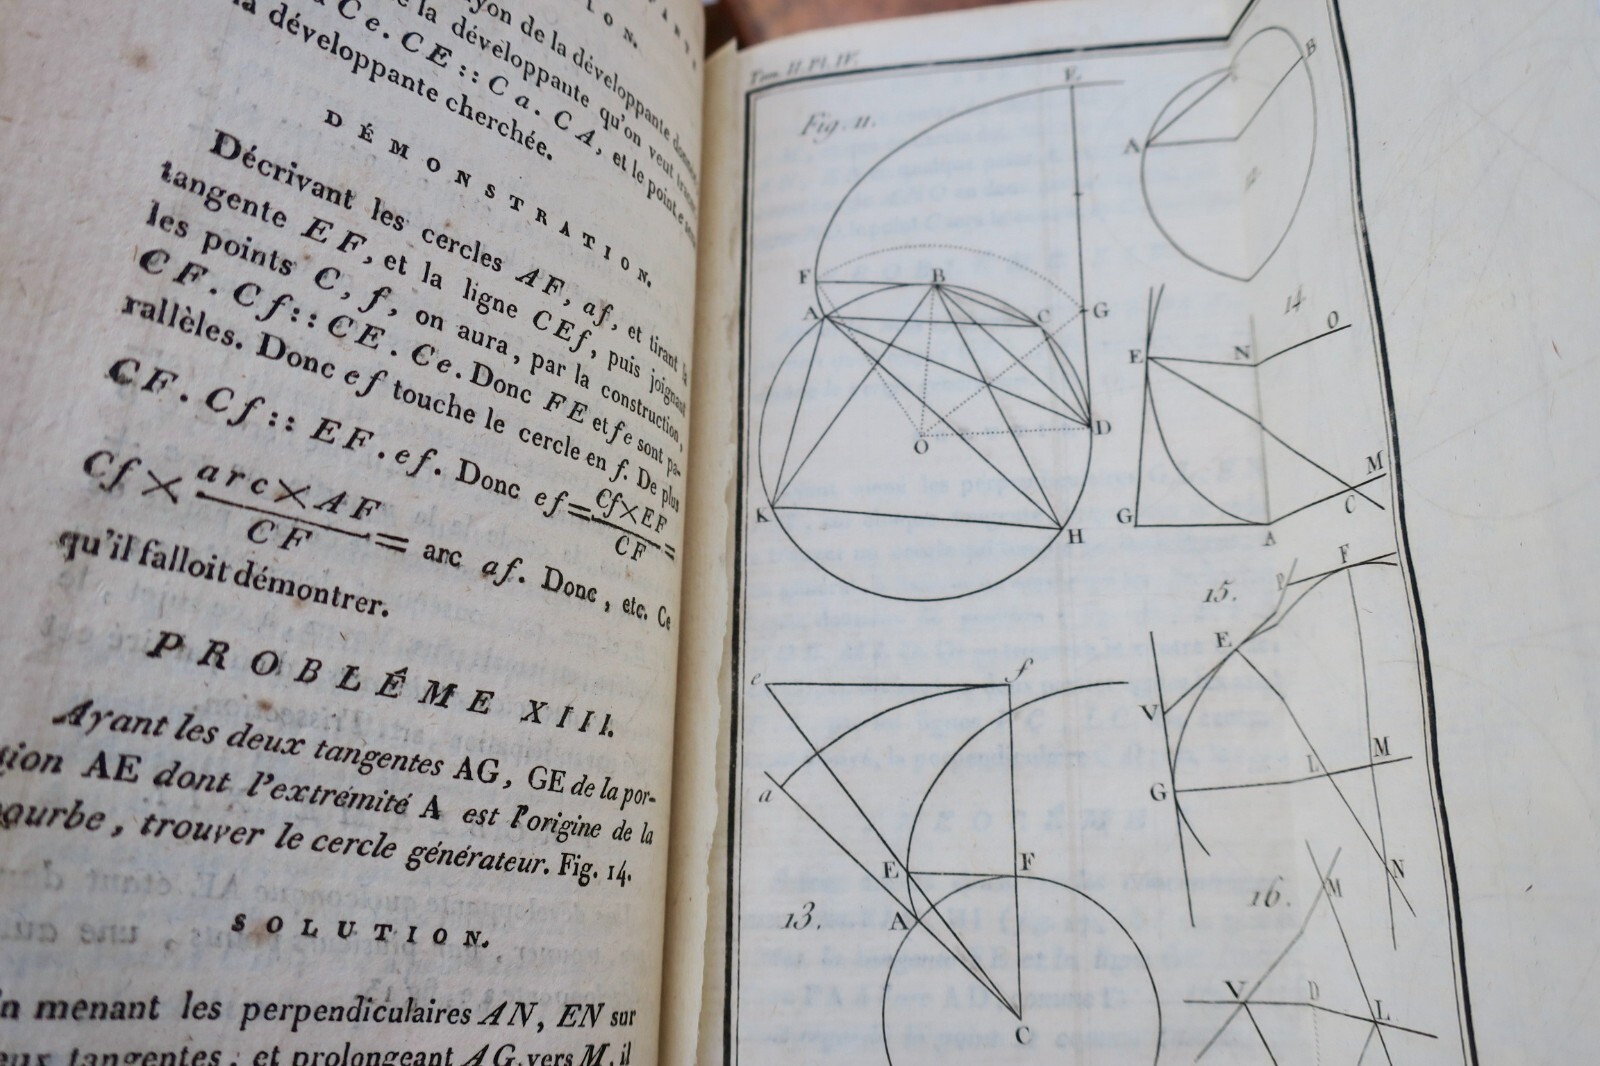 LON.
yon de la développante donné
la développante qu'on veut
Ce. CE :: Ca. CA, et le point e sera
la développante cherchée.
DÉMONSTRATION.
Décrivant les cercles AF, af, et tirant la
tangente EF, et la ligne CEf, puis joignant
les points C, f, on aura, par la construction,
CF. Cf :: CE. Ce. Donc FE et fe sont pa-
rallèles. Donc ef touche le cercle en f. De plus
CF. Cf :: EF. ef. Donc ef = Cf×EF / CF =
Cf × arc×AF / CF = arc af. Donc, etc. Ce
qu'il falloit démontrer.
PROBLÊME XIII.
Ayant les deux tangentes AG, GE de la por-
tion AE dont l'extrémité A est l'origine de la
courbe, trouver le cercle générateur. Fig. 14.
SOLUTION.
En menant les perpendiculaires AN, EN sur
eux tangentes, et prolongeant AG vers M, il
Tom. II. Pl. IV.
Fig. 11.
E
F
B
A
C
G
O
D
K
H
A
B
14
O
E
N
M
C
G
A
15.
P
F
E
V
M
L
G
N
e
f
a
E
F
13.
A
C
16.
M
V
D
L